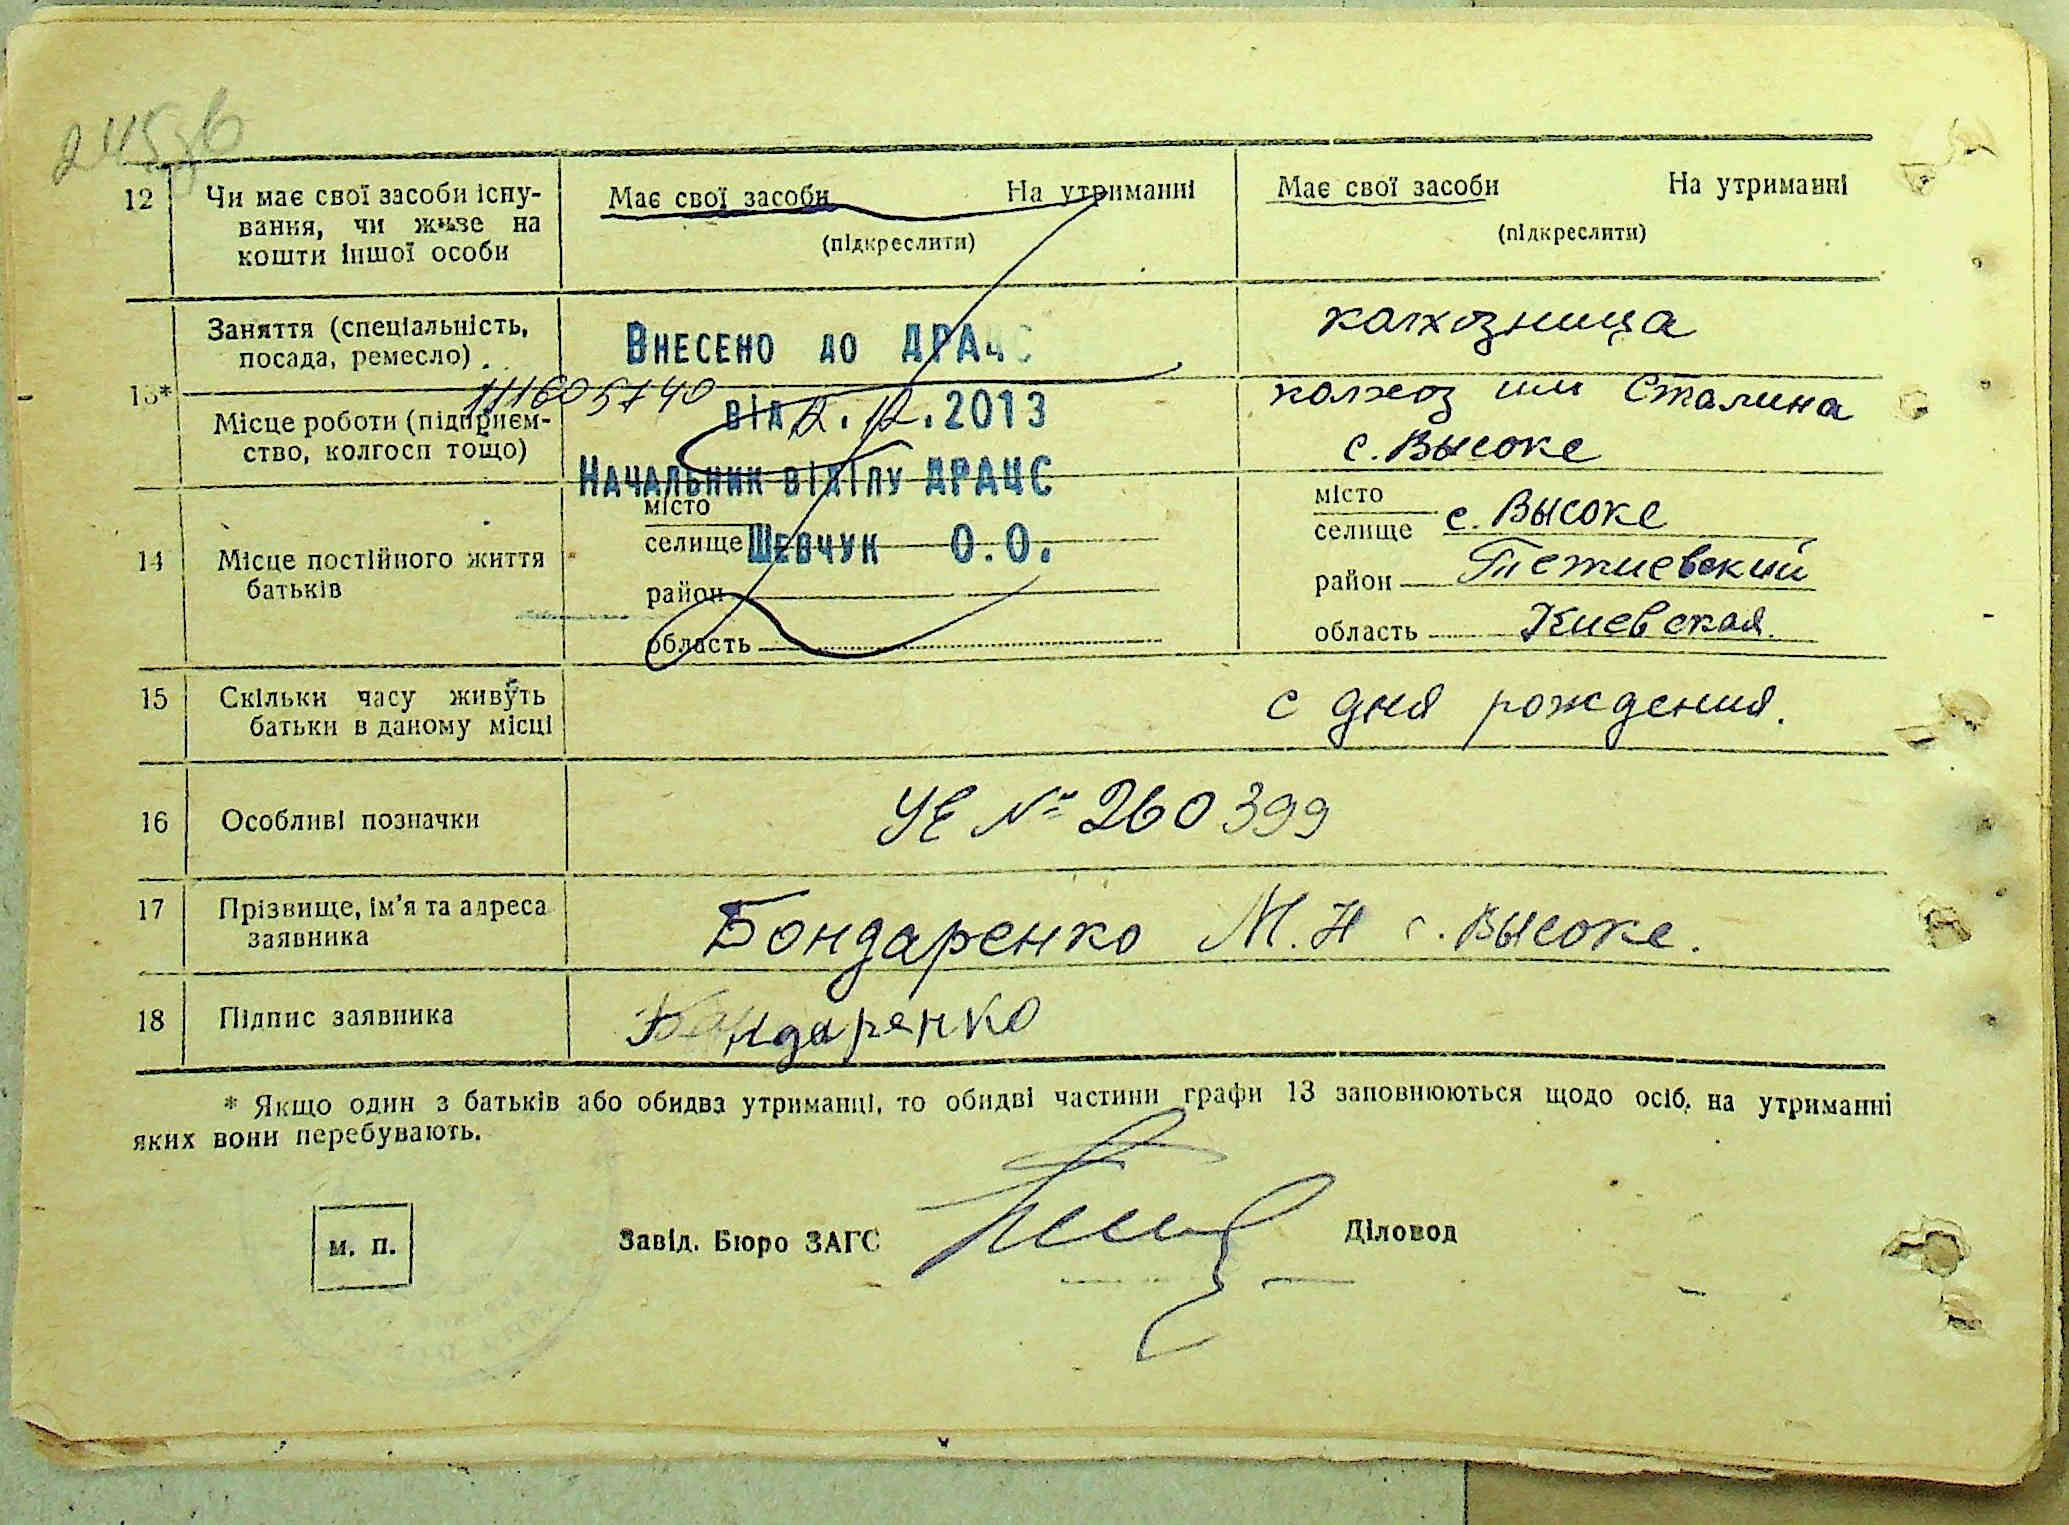 245зв
12 Чи має свої засоби існу-
вання, чи живе на
кошти іншої особи
Має свої засоби На утриманні
(підкреслити)
Має свої засоби На утриманні
(підкреслити)
13*
Заняття (спеціальність,
посада, ремесло)
Внесено до ДРАЦС
колхозница
Місце роботи (підприєм-
ство, колгосп тощо)
111605740
від 12.12.2013
Начальник відділу ДРАЦС
Шевчук О.О.
колхоз им Сталина
с. Высоке
14 Місце постійного життя
батьків
місто
селище
район
область
місто
селище с. Высоке
район
область Киевская.
15 Скільки часу живуть
батьки в даному місці
с дня рождения.
16 Особливі позначки
УЕ № 260399
17 Прізвище, ім'я та адреса
заявника
Бондаренко М.Н с. Высоке.
18 Підпис заявника
Бондаренко
* Якщо один з батьків або обидва утриманці, то обидві частини графи 13 заповнюються щодо осіб, на утриманні
яких вони перебувають.
м. п.
Завід. Бюро ЗАГС
Діловод